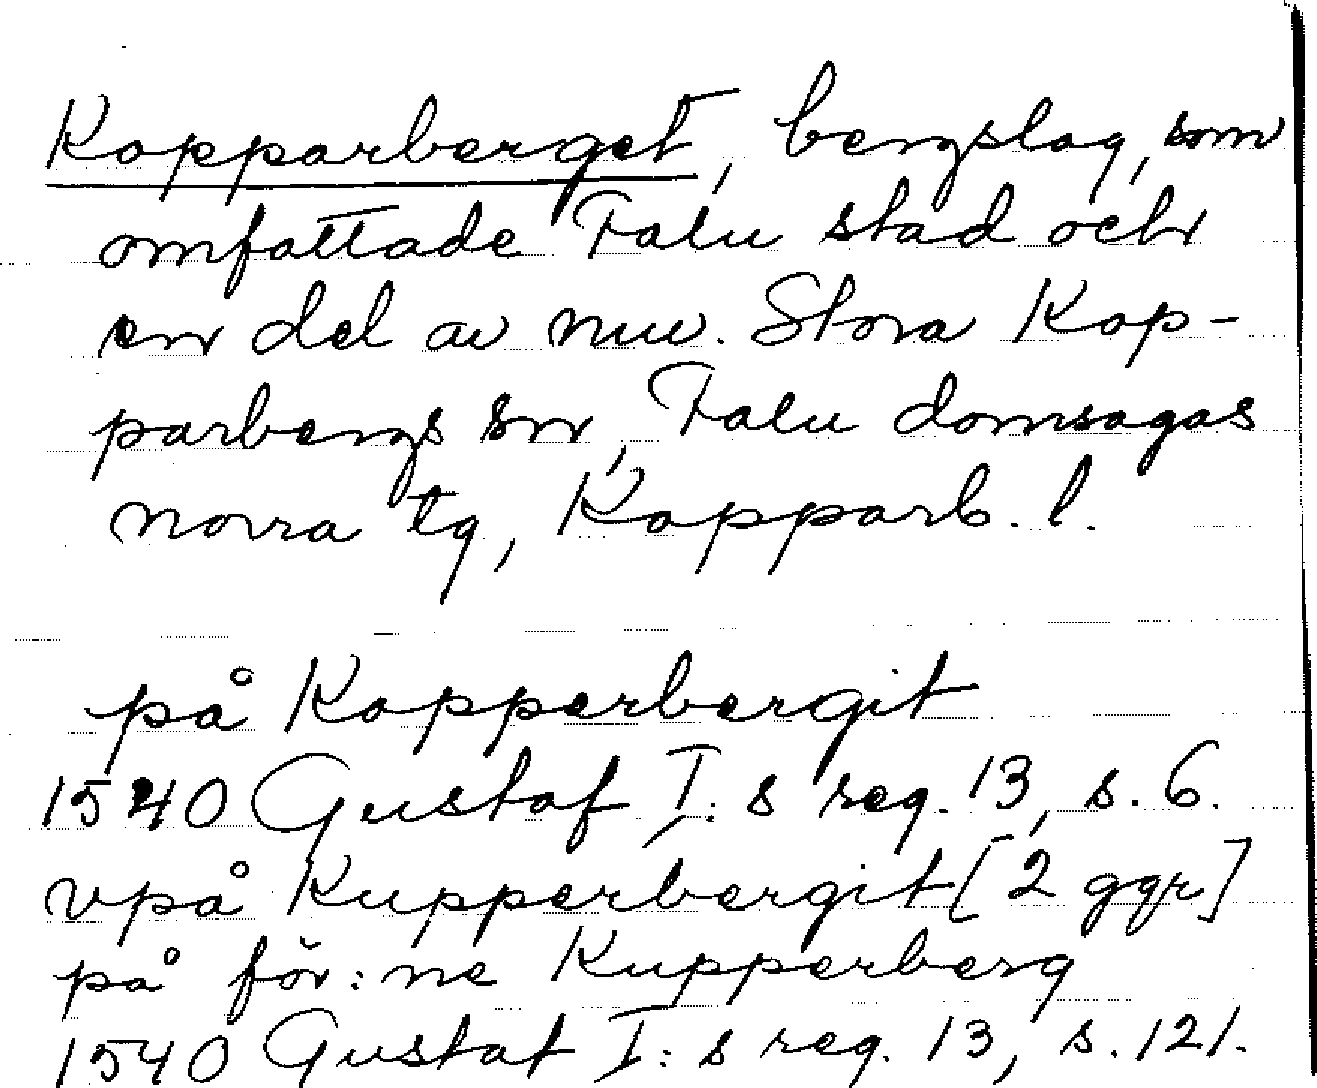 Kopparberget, bergslag, som
omfattade Falu stad och
en del av nuv. Stora Kop-
parbergs sn, Falu domsagas
norra tg, Kopparb. l.
på Kopperbergit
1540 Gustaf I:s reg. 13, s. 6.
vpå Kupperbergit [2 ggr]
på för:ne Kupperberg
1540 Gustaf I:s reg. 13, s. 121.